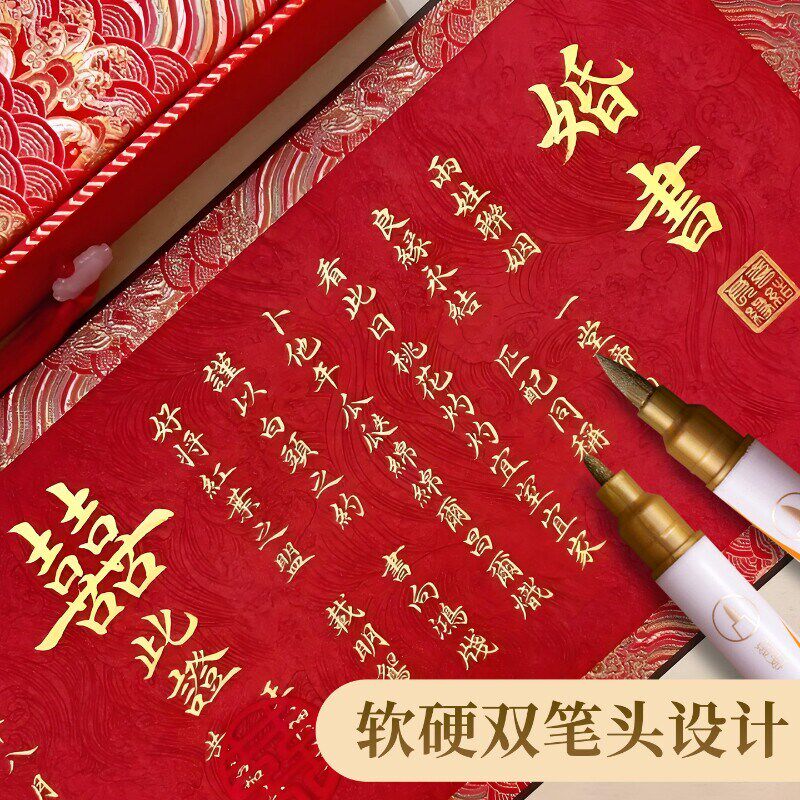 婚書
喜結良緣
兩姓聯姻 一堂締
良緣永結 匹配同稱
看此日桃花灼灼宜室宜家
卜他年瓜瓞綿綿爾昌爾熾
謹以白頭之約 書向鴻牋
好將紅葉之盟 載明鴛
囍
此證
八月
软硬双笔头设计